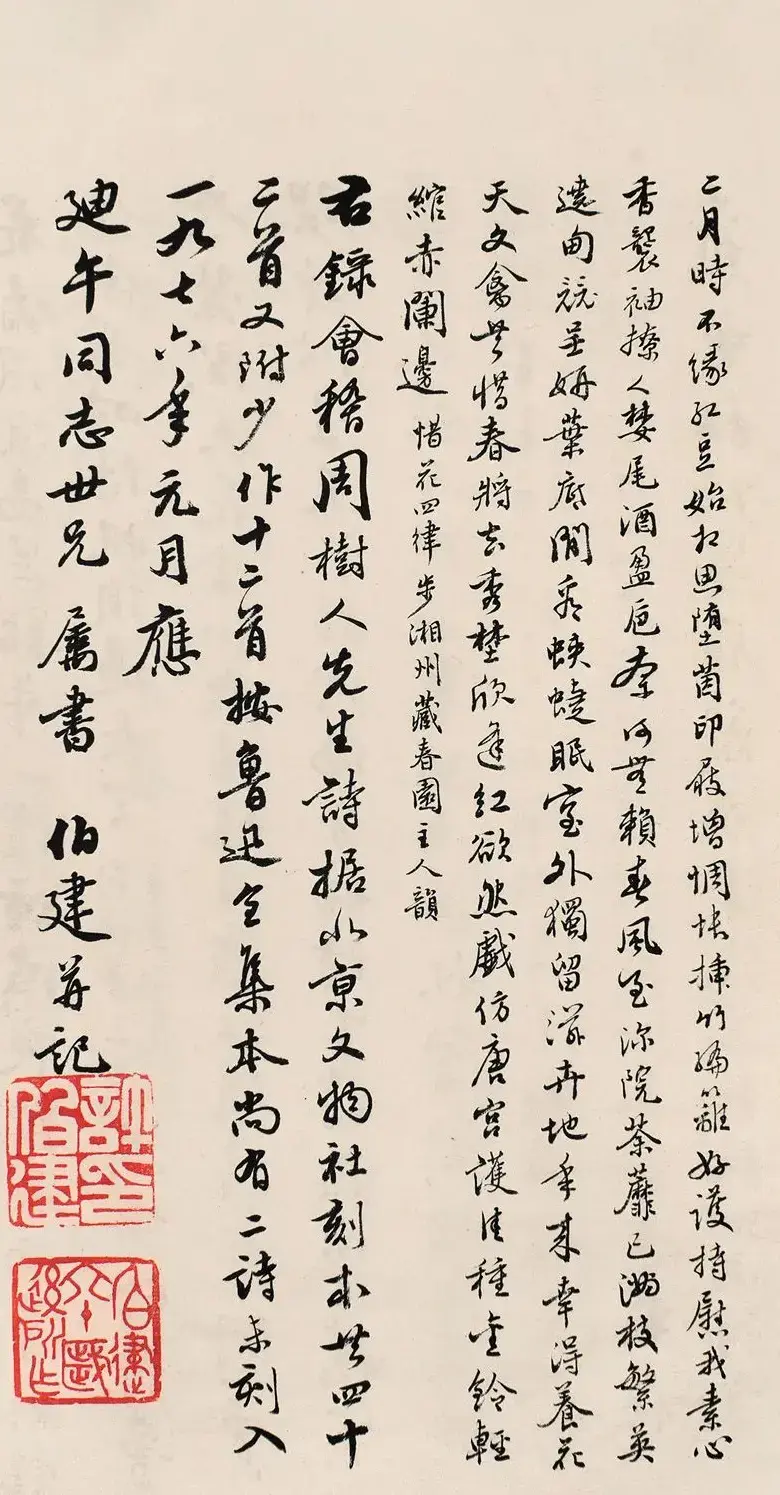 二月時不緣紅豆始相思堕茵印屐增惆悵插竹編籬好護持慰我素心
香襲袖撩人婪尾酒盈卮奈何無賴春風至深院荼蘼已滿枝繁英
遶甸競呈妍葉底閒看蛺蝶眠室外獨留滋卉地年来幸得養花
天文禽共惜春將去秀埜欣逢紅欲然戲仿唐宮護佳種金鈴輕
綰赤闌邊 惜花四律步湘州藏春園主人韻
右錄會稽周樹人先生詩据北京文物社刻本共四十
二首又附少作十二首據魯迅全集本尚有二詩未刻入
一九七六年元月應
廸午同志世兄 屬書 伯建并記
許伯建印
伯建六十歲後所作